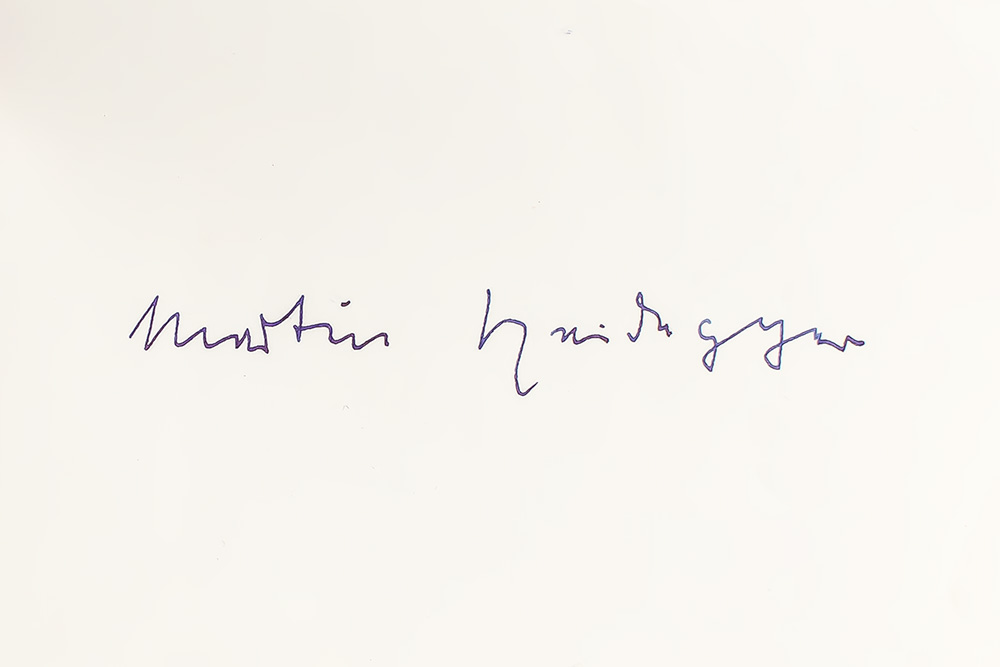 Martin Heidegger